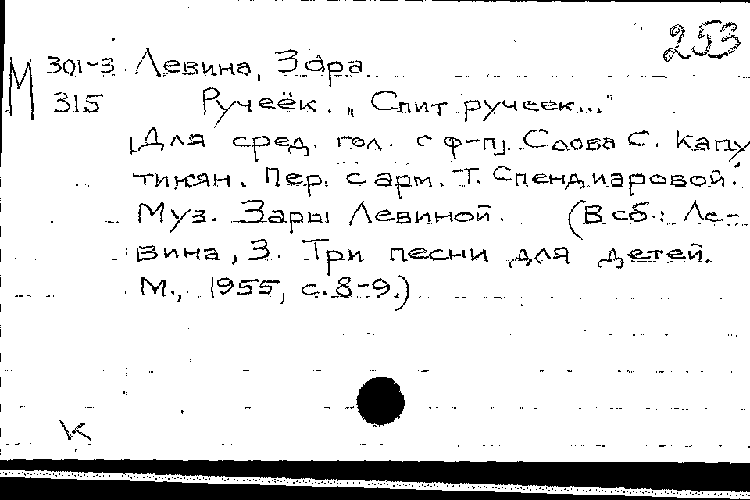 253
М 301-3 Левина, Зара
315 Ручеёк. "Спит ручеек..."
[Для сред. гол. с ф-п]. Слова С. Капу
тикян. Пер. с арм. Т. Спендиаровой.
Муз. Зары Левиной. (В сб.: Ле-
вина, З. Три песни для детей.
М., 1955, с. 8-9.)
К